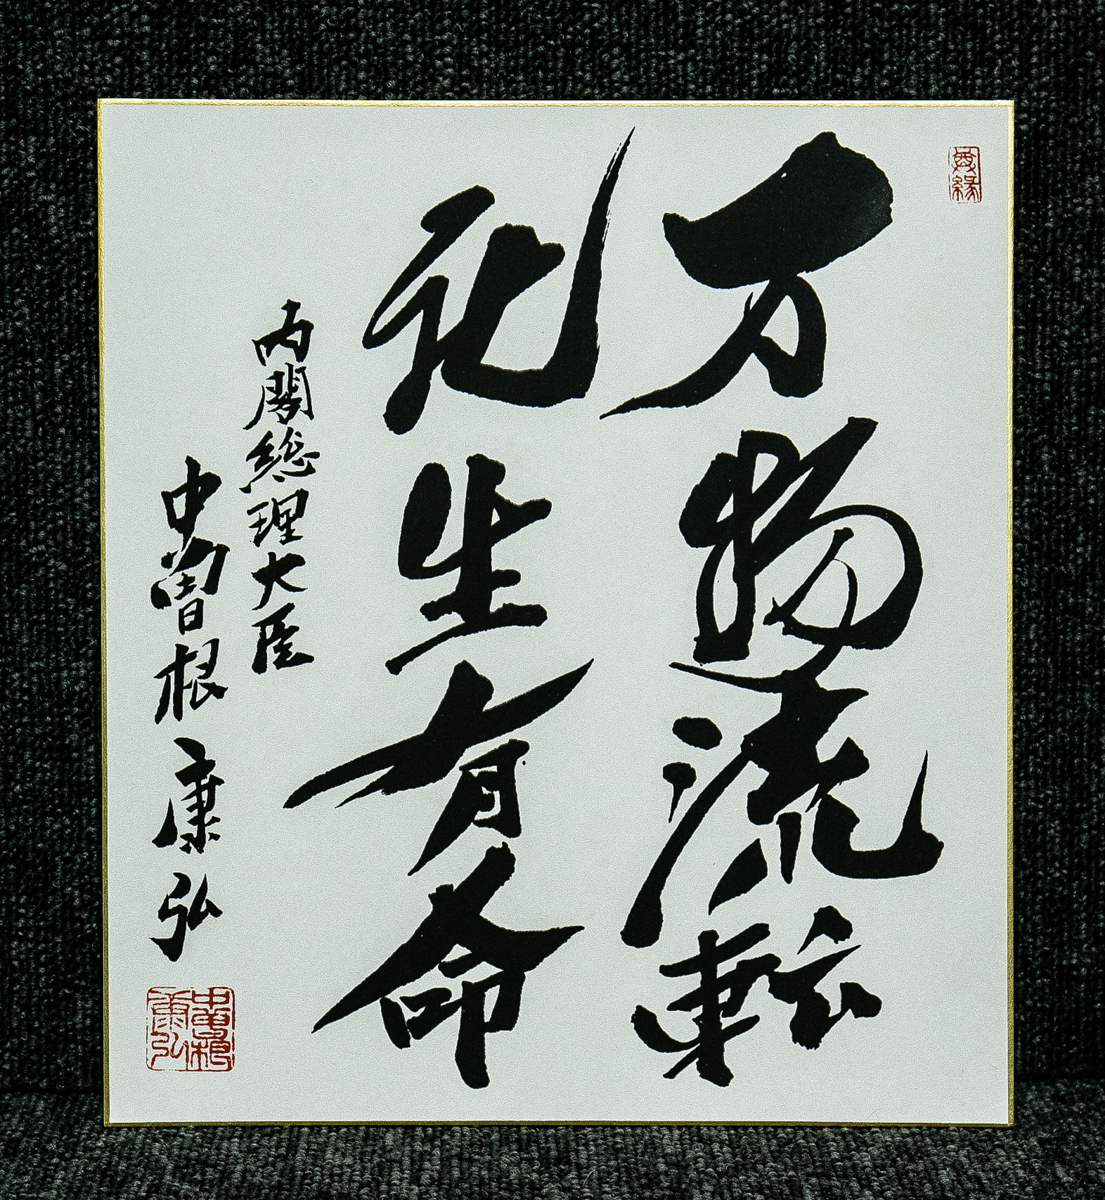 万物流転
化生有命
内閣総理大臣
中曽根康弘
中曽根
康弘